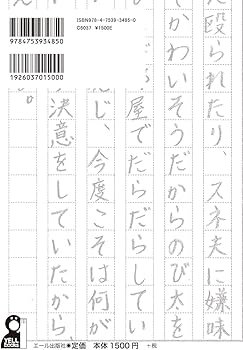 ISBN978-4-7539-3485-0
C6037 ¥1500E
9784753934850
1926037015000
た殴られたり、スネ夫に嫌味
てかわいそうだからのび太を
屋でだらだらしてい
じ、今度こそは何が
決意をしていたから
。
YELL BOOKS
エール出版社●定価 本体1500円 +税